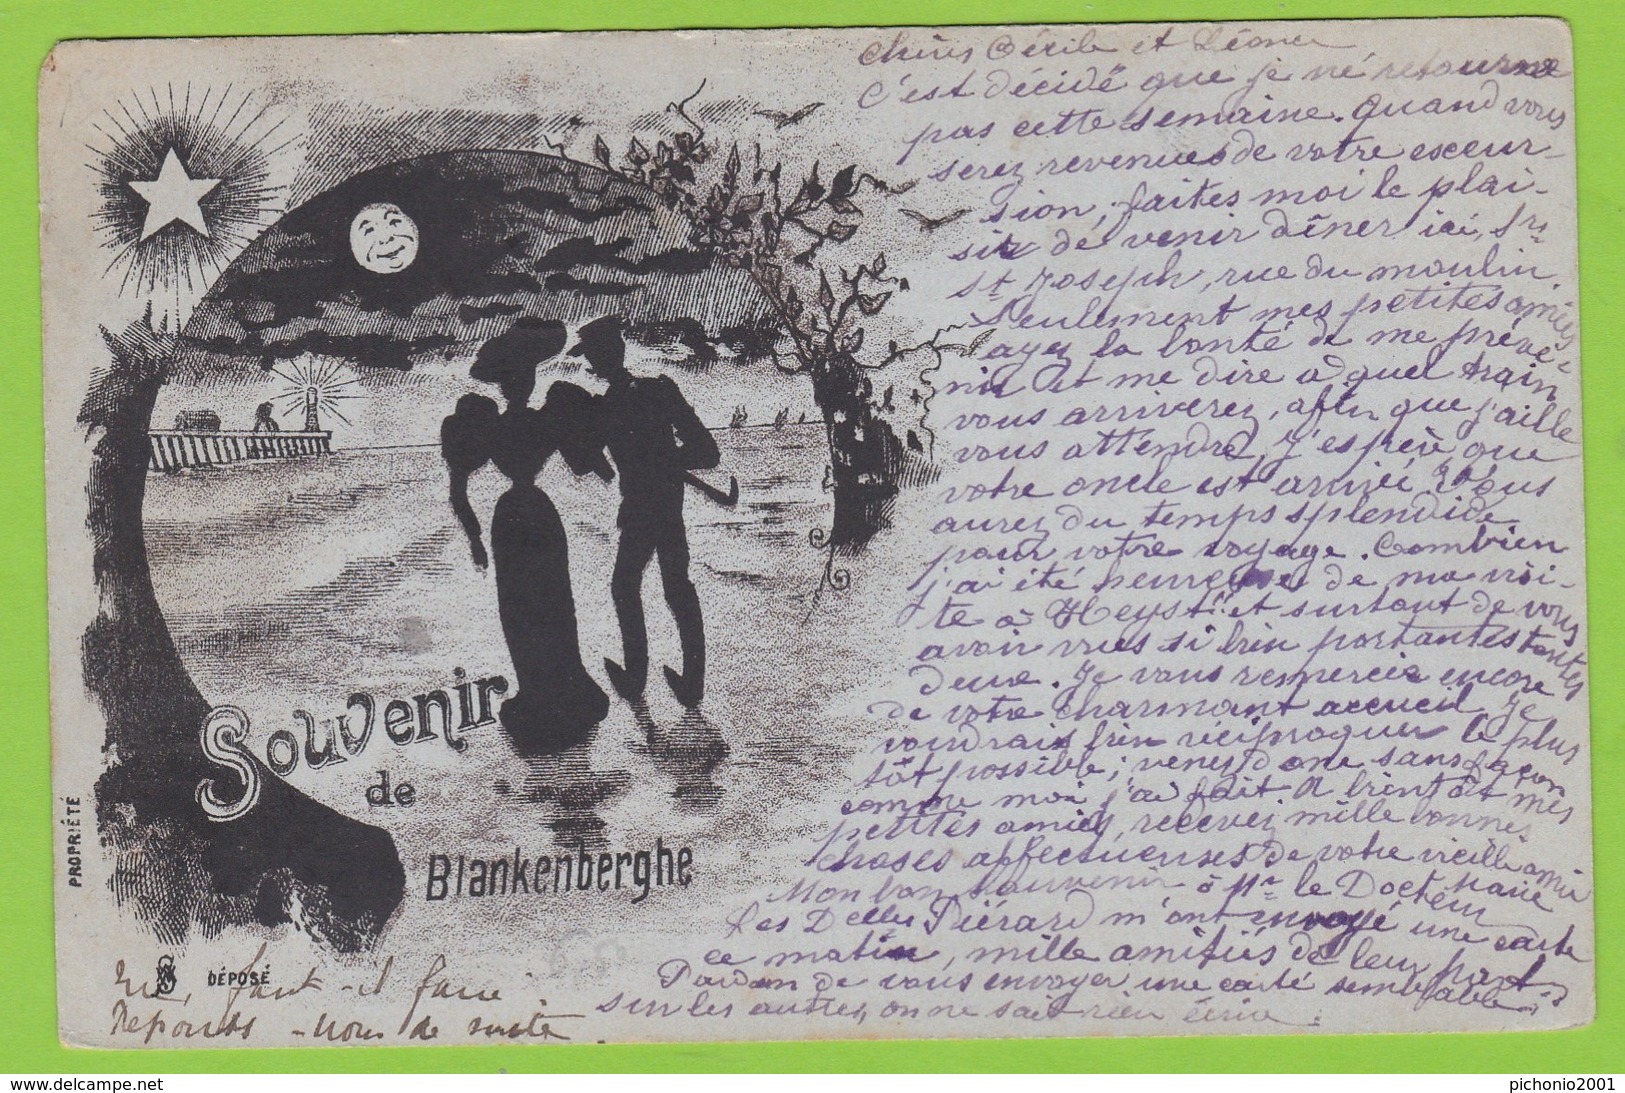 Chères Cécile et Léonie
C'est décidé que je ne retourne
pas cette semaine. Quand vous
serez revenues de votre excur-
sion, faites moi le plai-
sir de venir dîner ici,
St Joseph, rue du moulin.
Seulement mes petites amies
ayez la bonté de me préve-
nir et me dire à quel train
vous arriverez, afin que j'aille
vous attendre, J'espère que
votre oncle est arrivé Vous
aurez du temps splendide
pour votre voyage. Combien
j'ai été heureuse de ma visi-
te à Heyst!! et surtout de vous
avoir vues si bien portantes toutes
deux. Je vous remercie encore
de votre charmant accueil Je
voudrais bien réciproquer le plus
tôt possible; venez donc sans façon
comme moi j'ai fait A bientôt mes
petites amies, recevez mille bonnes
choses affectueuses de votre vieille amie
Mon bon souvenir à Mr le Doct Marie
Les Delles Piérard m'ont envoyé une carte
ce matin, mille amitiés de leur part
Pardon de vous envoyer une carte semblable
sur les autres, on ne sait rien écrire.
Souvenir
de
Blankenberghe
PROPRIÉTÉ
DÉPOSÉ
faut-il faire
Reponds-nous de suite
delcampe.net
pichonio2001